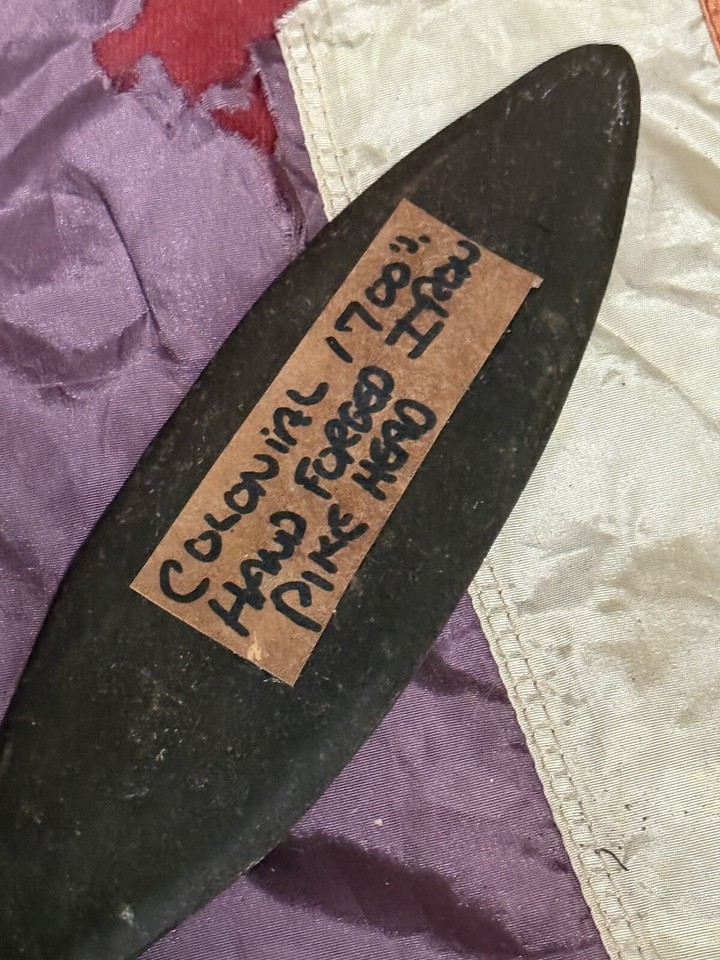 COLONIAL 1700"s.
HAND FORGED IRON
PIKE HEAD